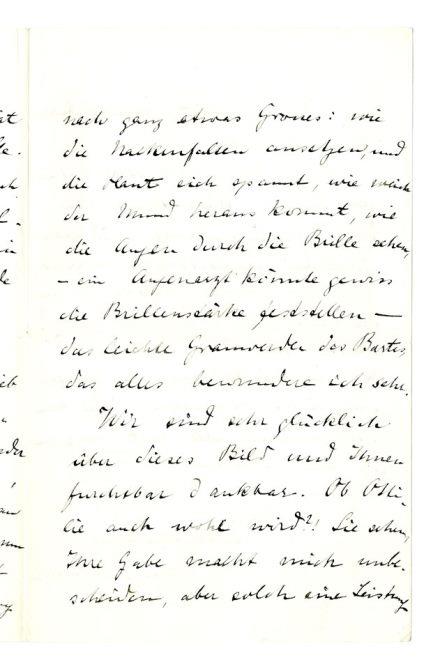 nach ganz etwas Grosses: wie
die Nackenfalten ansetzen, und
die Haut sich spannt, wie weich
der Mund heraus kommt, wie
die Augen durch die Brille sehen,
– ein Augenarzt könnte gewiss
die Brillenstärke feststellen –
das leichte Grauwerden des Bartes,
das alles bewundere ich sehr.
Wir sind sehr glücklich
über dieses Bild und Ihnen
furchtbar dankbar. Ob Otti-
lie auch wohl wird?! Sie sehen,
Ihre Gabe macht mich unbe-
scheiden, aber solch eine Leistung